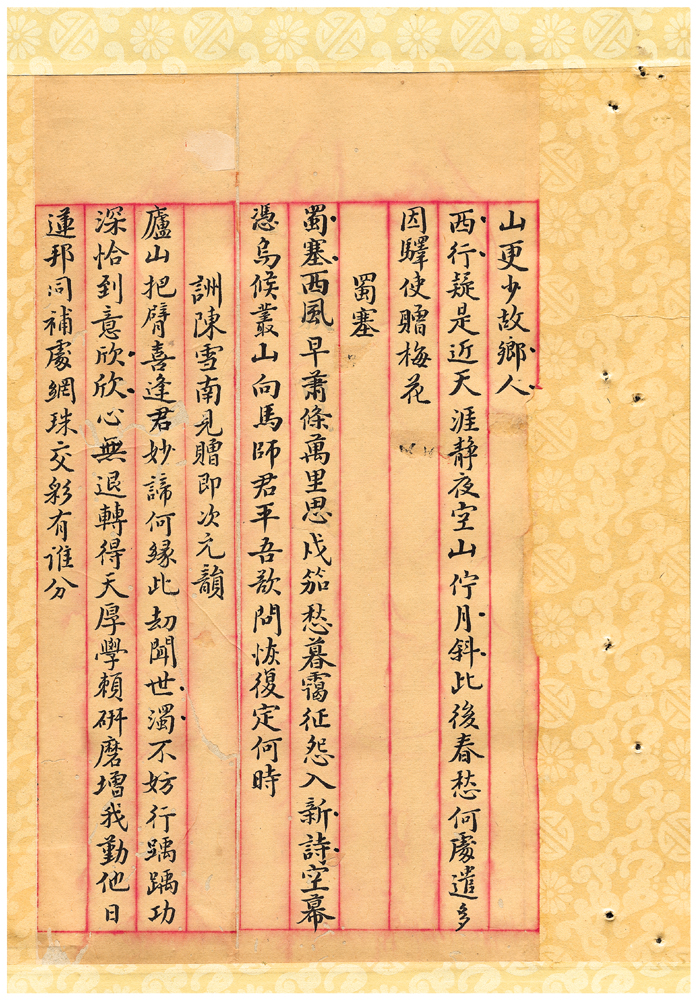 山更少故鄉人
西行疑是近天涯靜夜空山佇月斜此後春愁何處遣多
因驛使贈梅花
蜀塞
蜀塞西風早蕭條萬里思戍笳愁暮靄征怨入新詩空幕
憑烏候叢山向馬師君平吾欲問恢復定何時
詶陳雪南見贈即次元韻
廬山把臂喜逢君妙諦何緣此劫聞世濁不妨行踽踽功
深恰到意欣欣心無退轉得天厚學賴研磨增我勤他日
蓮邦同補處網珠交彩有誰分